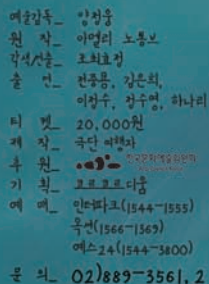 예술감독_ 양정웅
원 작_ 아멜리 노통브
각색/연출_ 조최효정
출 연_ 전중용, 김은희,
이정수, 정수영, 하나리
티 켓_ 20,000원
제 작_ 극단 여행자
후 원_ 한국문화예술위원회
기 획_ 코르코르디움
예 매_ 인터파크(1544-1555)
옥션(1566-1369)
예스24(1544-3800)
문 의_ 02)889-3561, 2